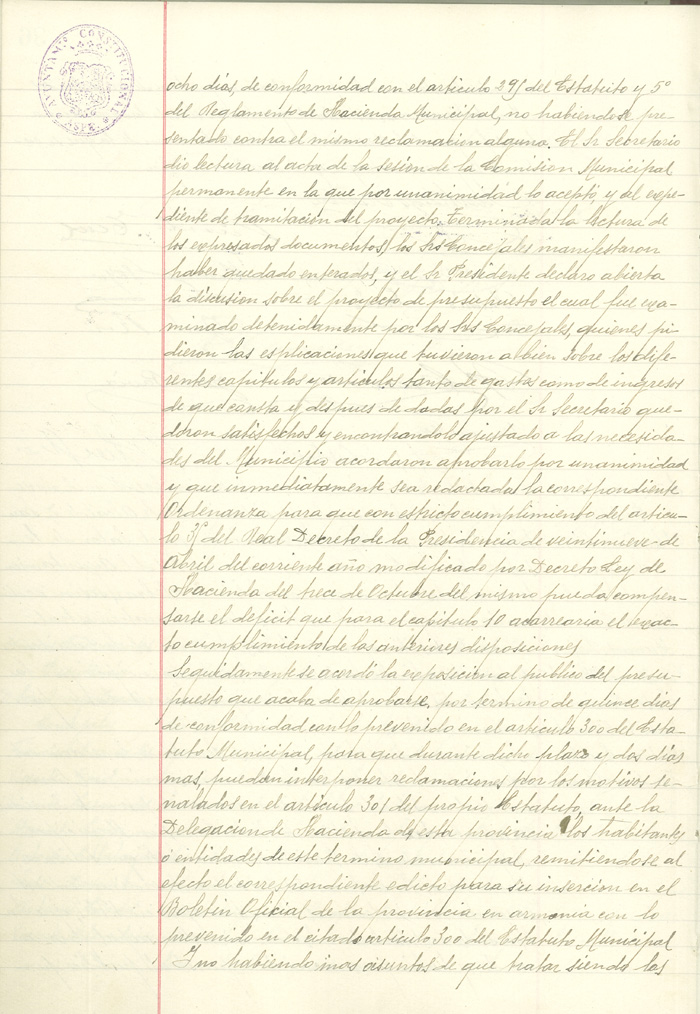 AYUNTAMᵗᵒ CONSTITUCIONAL
ocho dias, de conformidad con el articulo 295 del Estatuto y 5º
del Reglamento de Hacienda Municipal, no habiendose pre-
sentado contra el mismo reclamacion alguna. El Sr Secretario
dio lectura al acta de la sesión de la Comision Municipal
permanente en la que por unanimidad lo aceptó, y del expe-
diente de tramitación del proyecto. Terminada la lectura de
los expresados documentos, los Srs Concejales manifestaron
haber quedado enterados, y el Sr Presidente declaro abierta
la discusion sobre el proyecto de presupuesto el cual fue exa-
minado detenidamente por los Srs Concejales, quienes pi-
dieron las esplicaciones que tuvieron a bien sobre los dife-
rentes capitulos y articulos tanto de gastos como de ingresos
de que consta y despues de dadas por el Sr Secretario que-
daron satisfechos y encontrandolo ajustado a las necesida-
des del Municipio acordaron aprobarlo por unanimidad
y que inmediatamente sea redactada la correspondiente
Ordenanza para que con estricto cumplimiento del articu-
lo del Real Decreto de la Presidencia de veintinueve de
Abril del corriente año modificado por Decreto Ley de
Hacienda del trece de Octubre del mismo pueda compen-
sarse el deficit que para el capitulo 10 acarrearia el exac-
to cumplimiento de las anteriores disposiciones
Seguidamente se acordó la exposicion al publico del presu-
puesto que acaba de aprobarse, por termino de quince dias
de conformidad con lo prevenido en el articulo 300 del Esta-
tuto Municipal, para que durante dicho plazo y dos dias
mas, puedan interponer reclamaciones por los motivos se-
ñalados en el articulo 301 del propio Estatuto, ante la
Delegacion de Hacienda de esta provincia los habitantes
ó entidades de este termino municipal, remitiendose al
efecto el correspondiente edicto para su inserción en el
Boletin Oficial de la provincia en armonia con lo
prevenido en el citado articulo 300 del Estatuto Municipal
Y no habiendo mas asuntos de que tratar siendo las